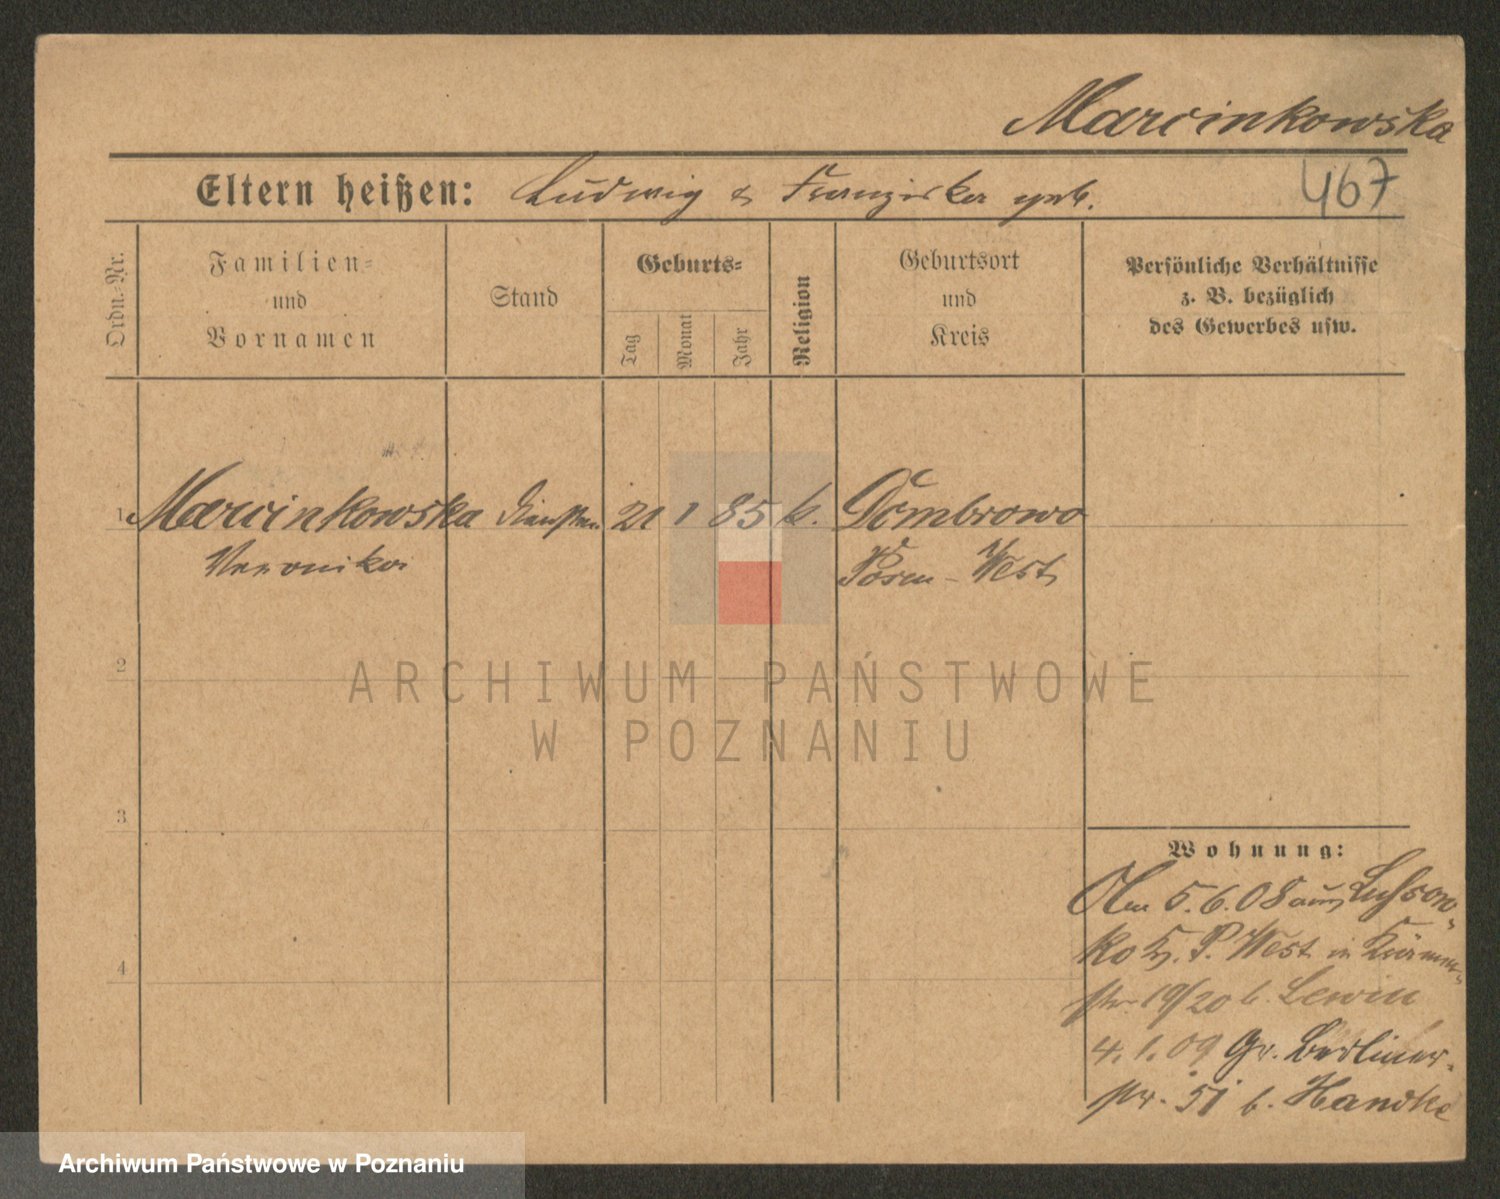 Marcinkowska
Eltern heißen: Ludwig & Franziska geb.
467
Ordn.-Nr.
Familien-
und
Vornamen
Stand
Geburts-
Tag
Monat
Jahr
Religion
Geburtsort
und
Kreis
Persönliche Verhältnisse
z. B. bezüglich
des Gewerbes usw.
1 Marcinkowska 21 1 85 k. Dombrowo
Veronika Posen-West
2
ARCHIWUM PAŃSTWOWE
W POZNANIU
3
Wohnung:
5.6.08 aus Lussow-
ko Kr. P. West in Krämer-
str. 19/20 b. Lewin
4.1.09 Gr. Berliner-
str. 51 b. Handke
4
Archiwum Państwowe w Poznaniu